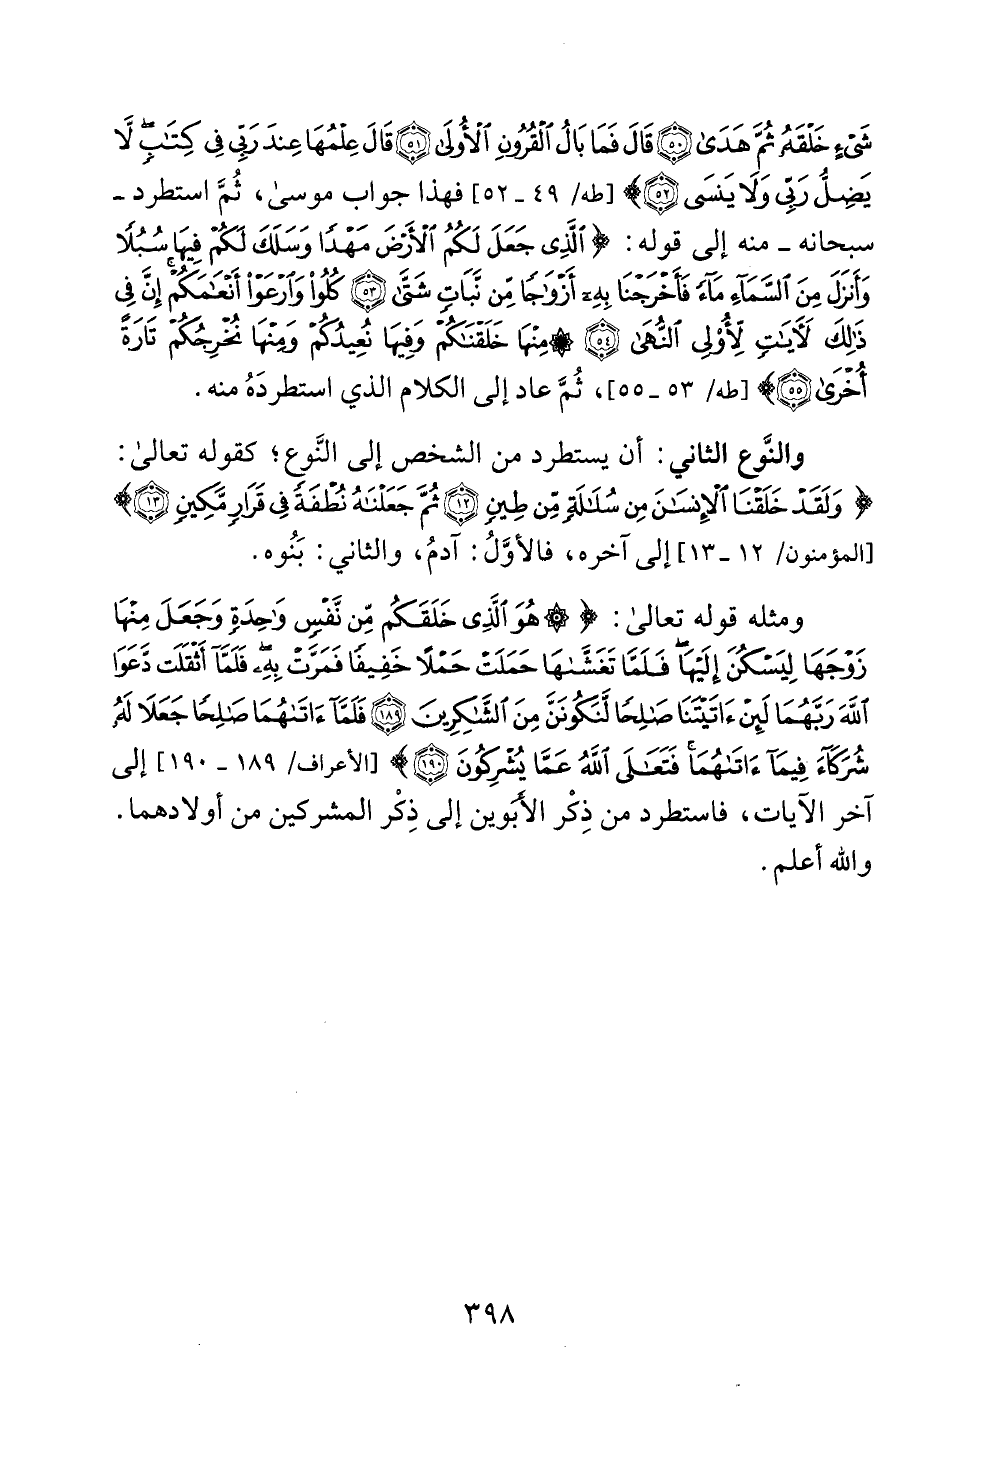 شَيْءٍ خَلْقَهُ ثُمَّ هَدَىٰ ۝٥٠ قَالَ فَمَا بَالُ ٱلْقُرُونِ ٱلْأُولَىٰ ۝٥١ قَالَ عِلْمُهَا عِندَ رَبِّى فِى كِتَٰبٍ ۖ لَّا
يَضِلُّ رَبِّى وَلَا يَنسَى ۝٥٢ ﴾ [طه/ ٤٩ ـ ٥٢] فهذا جواب موسىٰ، ثُمَّ استطرد ـ
سبحانه ـ منه إلى قوله: ﴿ ٱلَّذِى جَعَلَ لَكُمُ ٱلْأَرْضَ مَهْدًا وَسَلَكَ لَكُمْ فِيهَا سُبُلًا
وَأَنزَلَ مِنَ ٱلسَّمَآءِ مَآءً فَأَخْرَجْنَا بِهِۦٓ أَزْوَٰجًا مِّن نَّبَاتٍ شَتَّىٰ ۝٥٣ كُلُوا۟ وَٱرْعَوْا۟ أَنْعَٰمَكُمْ ۗ إِنَّ فِى
ذَٰلِكَ لَأَيَٰتٍ لِّأُو۟لِى ٱلنُّهَىٰ ۝٥٤ ۞ مِنْهَا خَلَقْنَٰكُمْ وَفِيهَا نُعِيدُكُمْ وَمِنْهَا نُخْرِجُكُمْ تَارَةً
أُخْرَىٰ ۝٥٥ ﴾ [طه/ ٥٣ ـ ٥٥]، ثُمَّ عاد إلى الكلام الذي استطردَهُ منه.
والنَّوع الثاني: أن يستطرد من الشخص إلى النَّوع؛ كقوله تعالىٰ:
﴿ وَلَقَدْ خَلَقْنَا ٱلْإِنسَٰنَ مِن سُلَٰلَةٍ مِّن طِينٍ ۝١٢ ثُمَّ جَعَلْنَٰهُ نُطْفَةً فِى قَرَارٍ مَّكِينٍ ۝١٣ ﴾
[المؤمنون/ ١٢ ـ ١٣] إلى آخره، فالأوَّلُ: آدمُ، والثاني: بَنُوه.
ومثله قوله تعالىٰ: ﴿ ۞ هُوَ ٱلَّذِى خَلَقَكُم مِّن نَّفْسٍ وَٰحِدَةٍ وَجَعَلَ مِنْهَا
زَوْجَهَا لِيَسْكُنَ إِلَيْهَا ۖ فَلَمَّا تَغَشَّىٰهَا حَمَلَتْ حَمْلًا خَفِيفًا فَمَرَّتْ بِهِۦ ۖ فَلَمَّآ أَثْقَلَت دَّعَوَا
ٱللَّهَ رَبَّهُمَا لَئِنْ ءَاتَيْتَنَا صَٰلِحًا لَّنَكُونَنَّ مِنَ ٱلشَّٰكِرِينَ ۝١٨٩ فَلَمَّآ ءَاتَىٰهُمَا صَٰلِحًا جَعَلَا لَهُۥ
شُرَكَآءَ فِيمَآ ءَاتَىٰهُمَا ۚ فَتَعَٰلَى ٱللَّهُ عَمَّا يُشْرِكُونَ ۝١٩٠ ﴾ [الأعراف/ ١٨٩ ـ ١٩٠] إلى
آخر الآيات، فاستطرد من ذِكْر الأَبَوين إلى ذِكْر المشركين من أولادهما.
والله أعلم.
٣٩٨